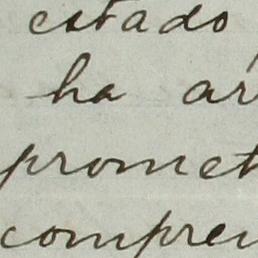 estado
ha ar
promet
compren